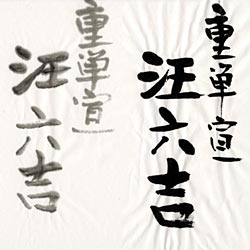 重単宣
汪六吉
重単宣
汪六吉